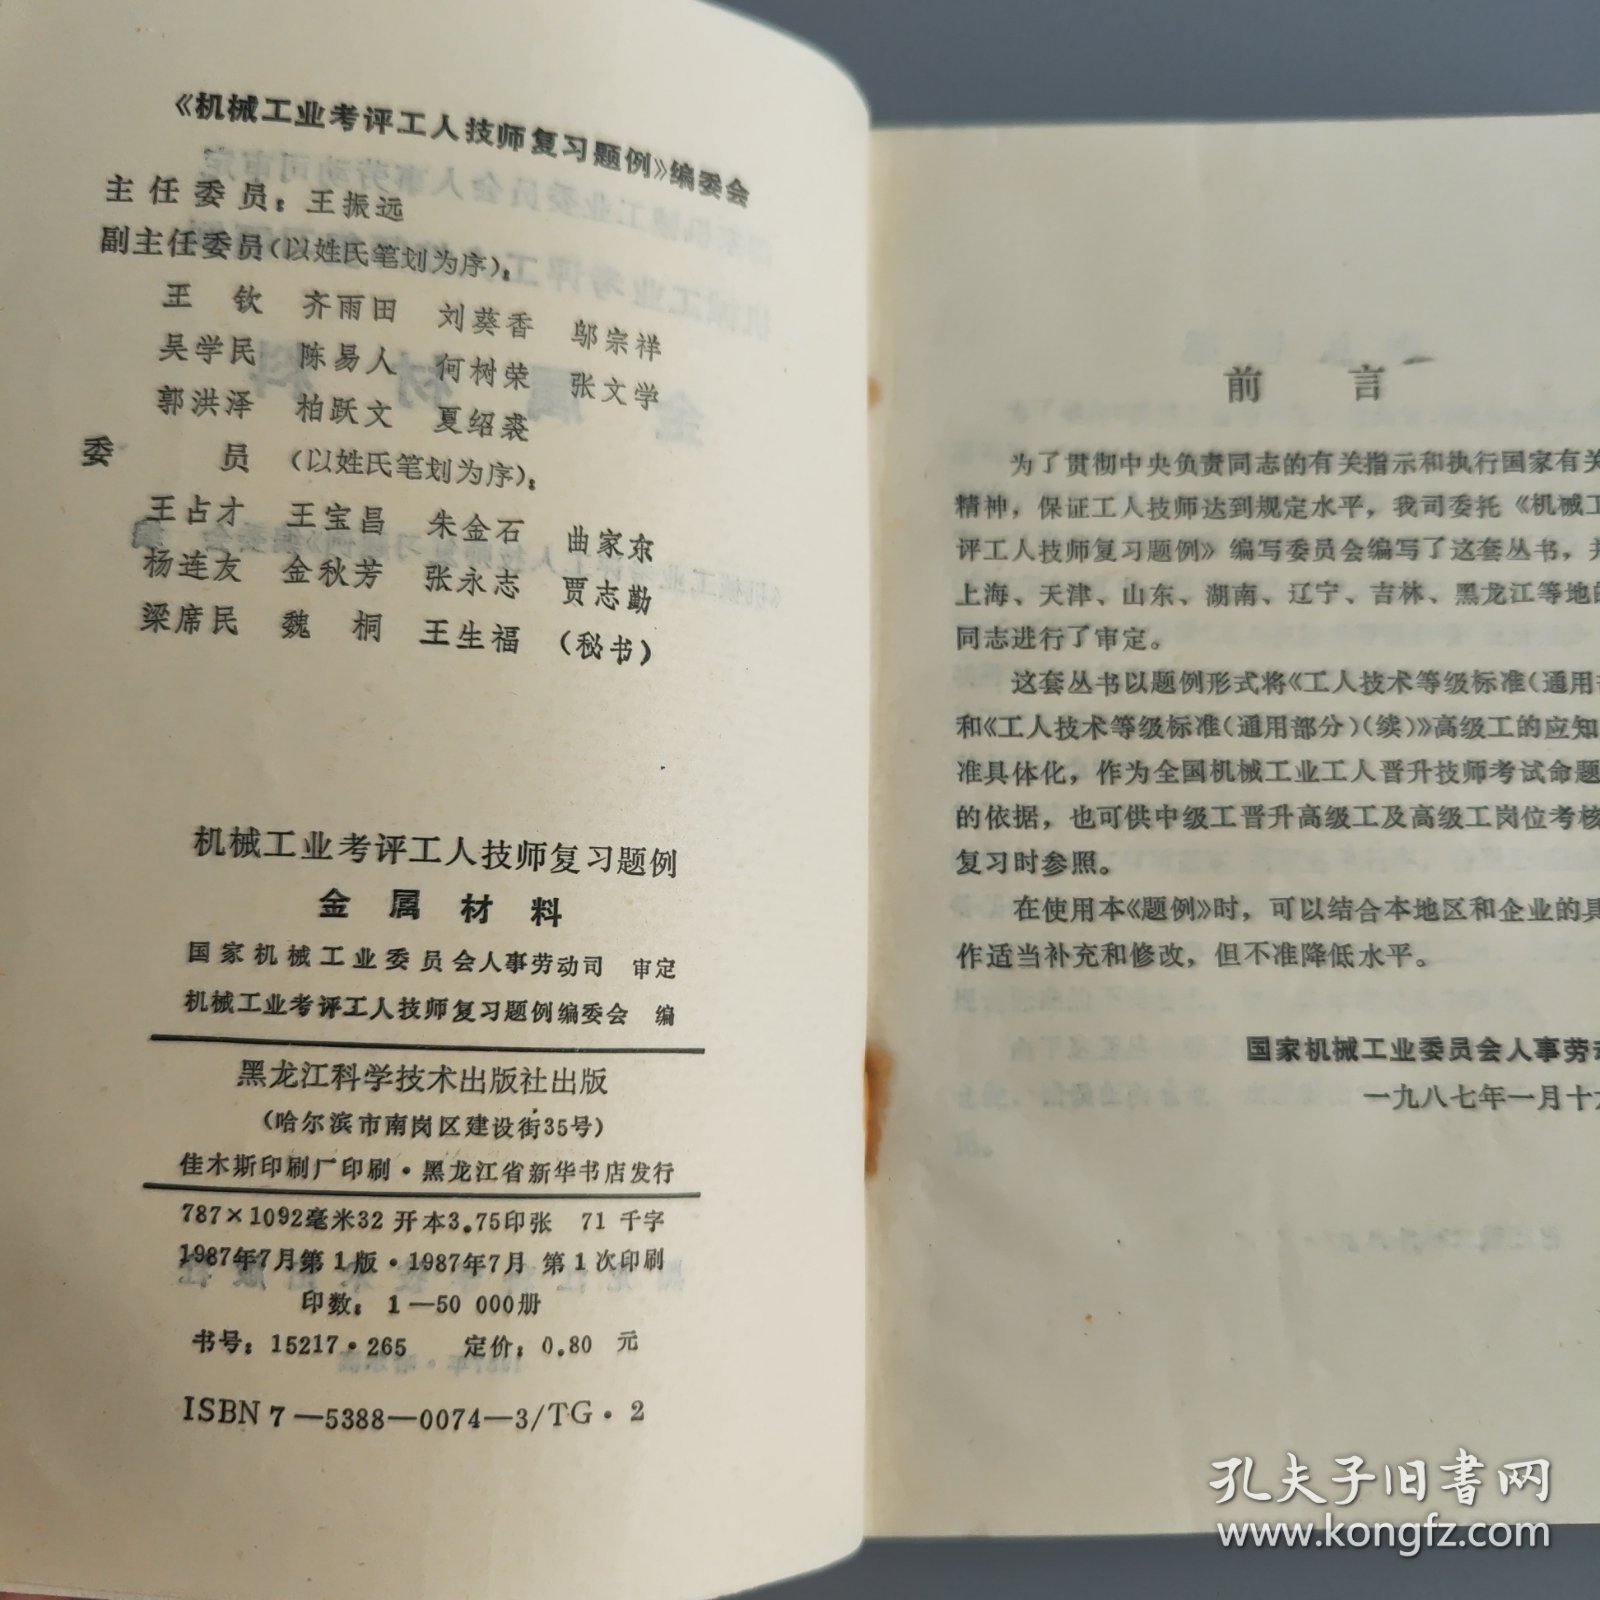 《机械工业考评工人技师复习题例》编委会
主任委员：王振远
副主任委员（以姓氏笔划为序）：
王 钦 齐雨田 刘葵香 邬宗祥
吴学民 陈易人 何树荣 张文学
郭洪泽 柏跃文 夏绍裘
委 员 （以姓氏笔划为序）：
王占才 王宝昌 朱金石 曲家东
杨连友 金秋芳 张永志 贾志勤
梁席民 魏 桐 王生福 （秘书）
机械工业考评工人技师复习题例
金属材料
国家机械工业委员会人事劳动司 审定
机械工业考评工人技师复习题例编委会 编
黑龙江科学技术出版社出版
（哈尔滨市南岗区建设街35号）
佳木斯印刷厂印刷·黑龙江省新华书店发行
787×1092毫米32 开本3.75印张 71 千字
1987年7月第1版·1987年7月 第1次印刷
印数：1—50 000册
书号：15217·265 定价：0.80 元
ISBN 7—5388—0074—3/TG·2
前 言
为了贯彻中央负责同志的有关指示和执行国家有关
精神，保证工人技师达到规定水平，我司委托《机械工
评工人技师复习题例》编写委员会编写了这套丛书，并
上海、天津、山东、湖南、辽宁、吉林、黑龙江等地的
同志进行了审定。
这套丛书以题例形式将《工人技术等级标准（通用部
和《工人技术等级标准（通用部分）（续）》高级工的应知
准具体化，作为全国机械工业工人晋升技师考试命题
的依据，也可供中级工晋升高级工及高级工岗位考核
复习时参照。
在使用本《题例》时，可以结合本地区和企业的具
作适当补充和修改，但不准降低水平。
国家机械工业委员会人事劳动
一九八七年一月十六
孔夫子旧书网
www.kongfz.com